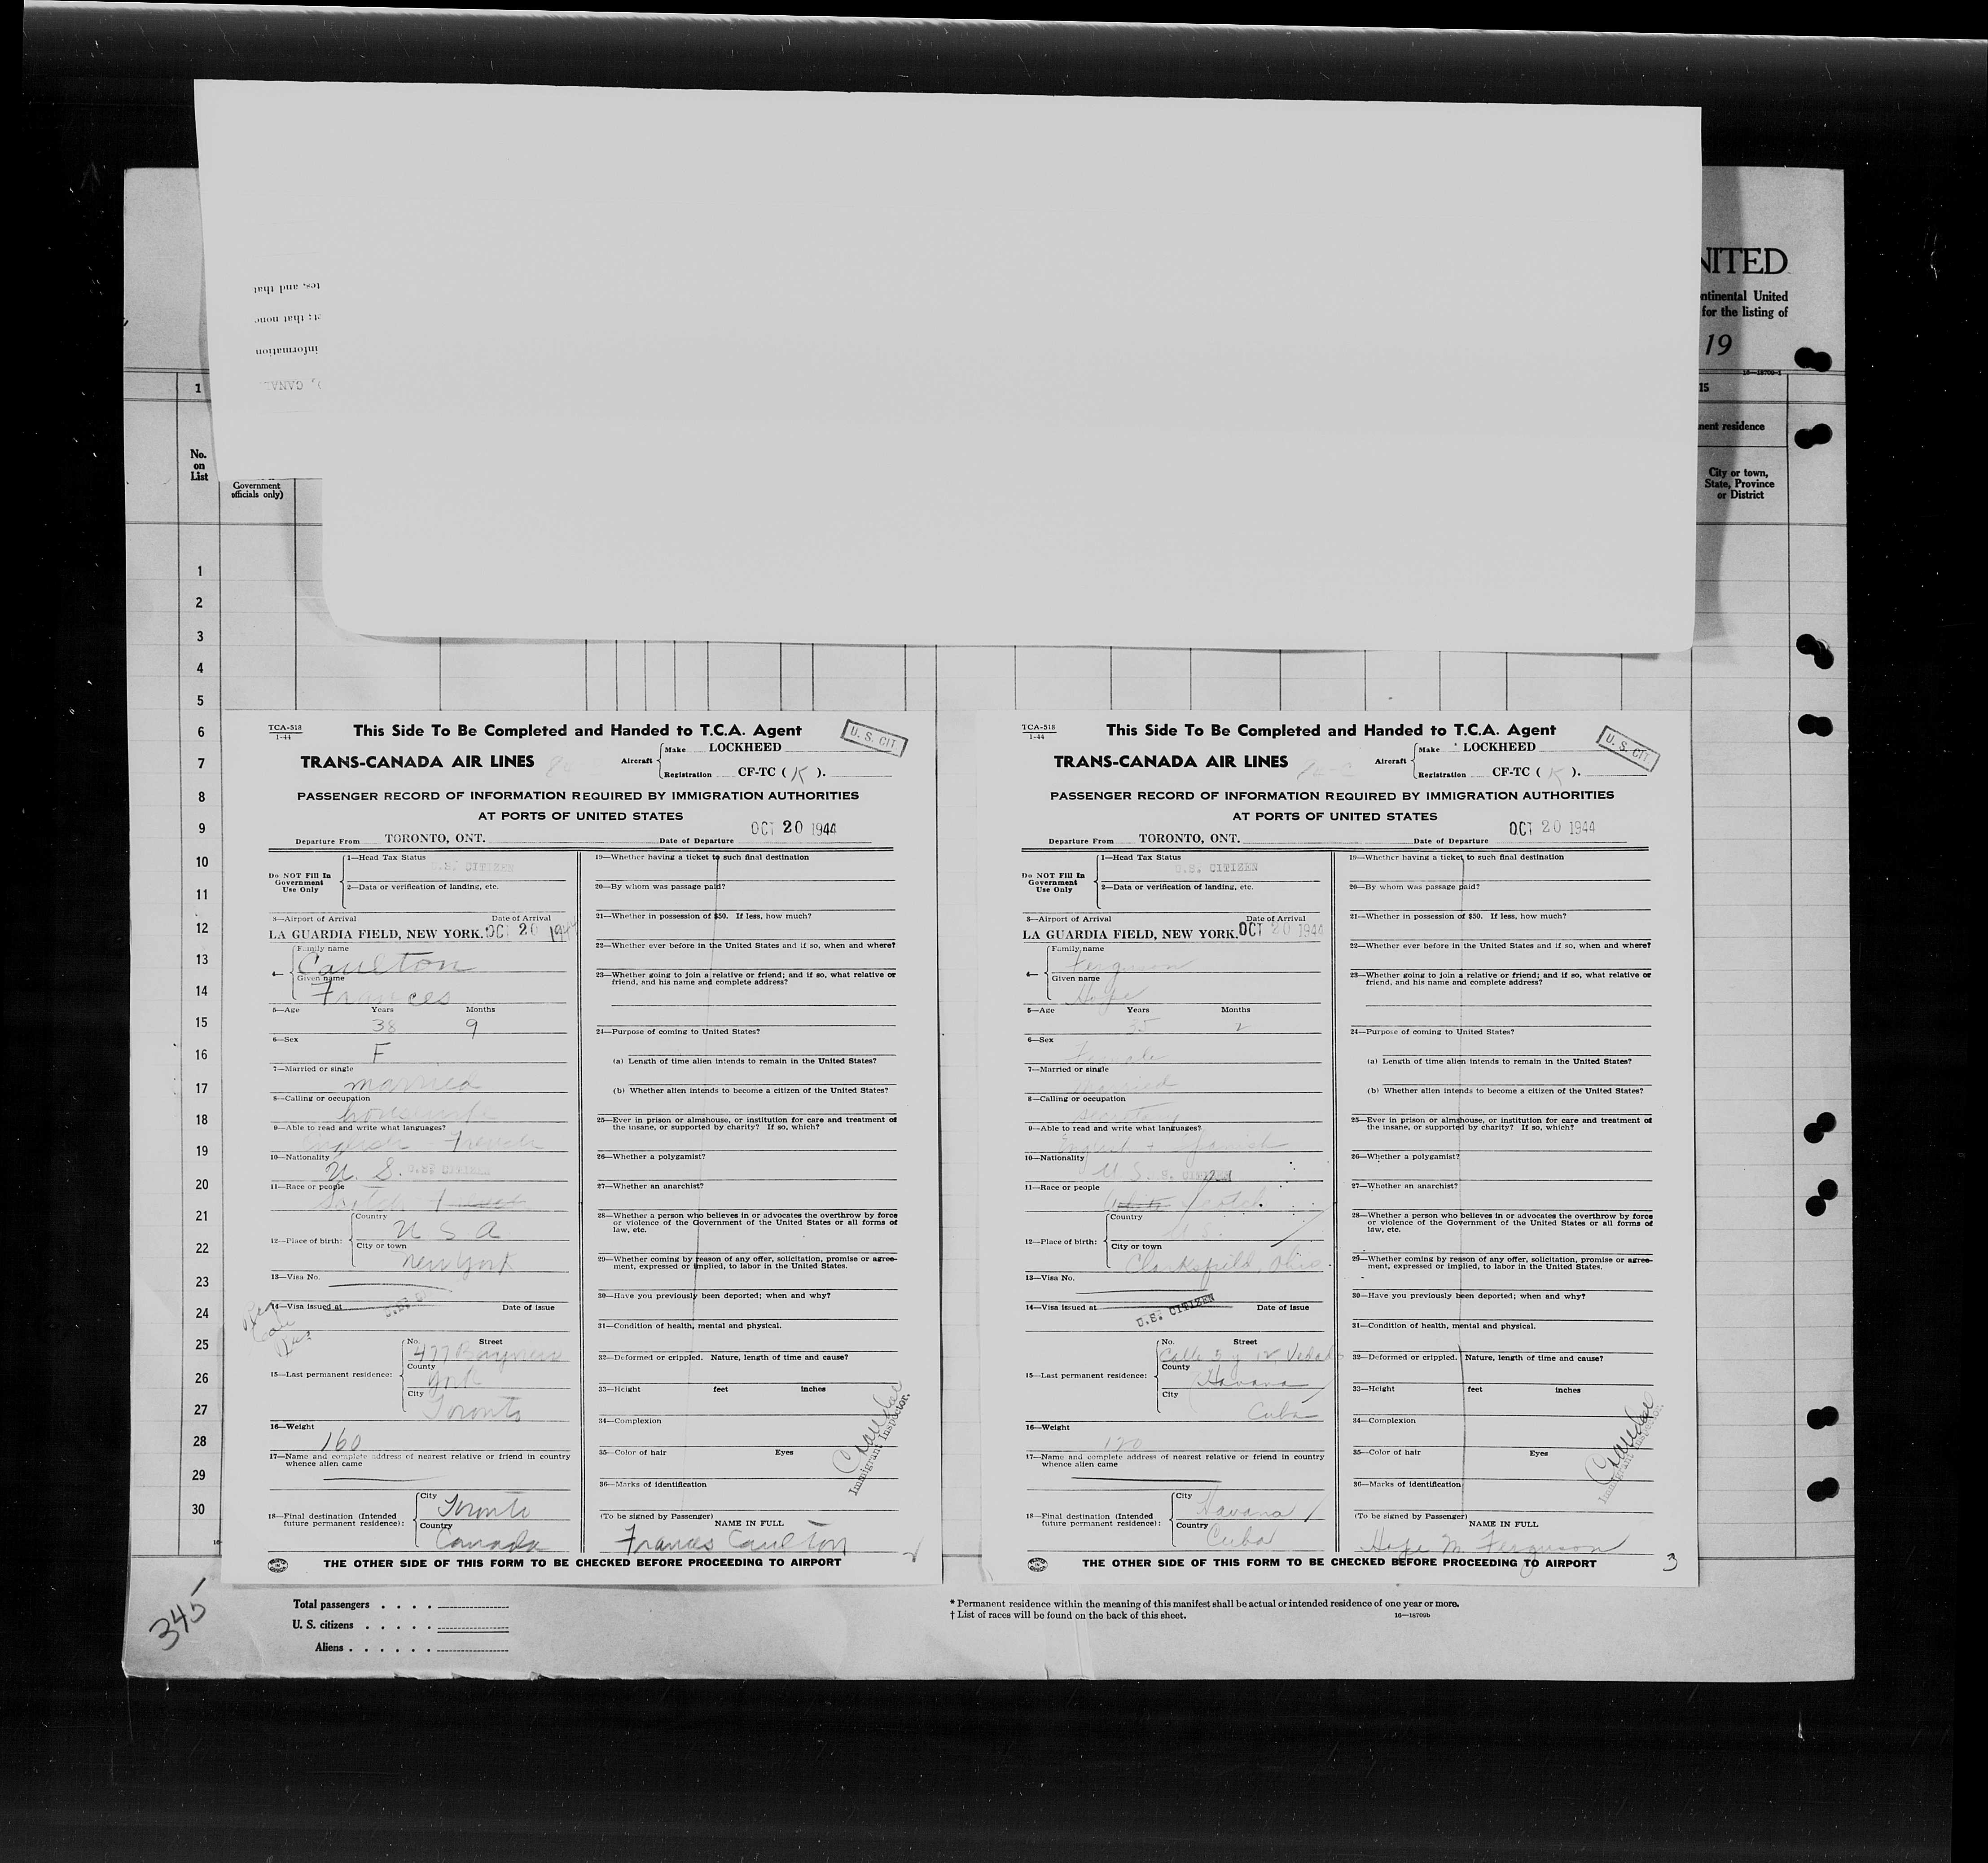 NITED
ntinental United
for the listing of
19
16—18709-1
1
15
nent residence
No.
on
List
Government
officials only)
City or town,
State, Province
or District
tes, and that
t; that none
information
CANA
1
2
3
4
5
6
7
8
9
10
11
12
13
14
15
16
17
18
19
20
21
22
23
24
25
26
27
28
29
30
TCA-518
1-44
This Side To Be Completed and Handed to T.C.A. Agent
U. S. CIT
TRANS-CANADA AIR LINES
Aircraft
Make LOCKHEED
Registration CF-TC ( K ).
PASSENGER RECORD OF INFORMATION REQUIRED BY IMMIGRATION AUTHORITIES
AT PORTS OF UNITED STATES
Departure From TORONTO, ONT. Date of Departure OCT 20 1944
Do NOT Fill In
Government
Use Only
1—Head Tax Status U.S. CITIZEN
2—Data or verification of landing, etc.
3—Airport of Arrival Date of Arrival
LA GUARDIA FIELD, NEW YORK. OCT 20 194
Family name
Caulton
Given name
Frances
5—Age Years Months
38 9
6—Sex
F
7—Married or single
married
8—Calling or occupation
housewife
9—Able to read and write what languages?
English French
10—Nationality
U. S. U.S. CITIZEN
11—Race or people
12—Place of birth:
Country
U S A
City or town
New York
13—Visa No.
14—Visa issued at Date of issue
15—Last permanent residence:
No. Street
477
County
York
City
Toronto
16—Weight
160
17—Name and complete address of nearest relative or friend in country
whence alien came
18—Final destination (Intended
future permanent residence):
City
Toronto
Country
Canada
19—Whether having a ticket to such final destination
20—By whom was passage paid?
21—Whether in possession of $50. If less, how much?
22—Whether ever before in the United States and if so, when and where?
23—Whether going to join a relative or friend; and if so, what relative or
friend, and his name and complete address?
24—Purpose of coming to United States?
(a) Length of time alien intends to remain in the United States?
(b) Whether alien intends to become a citizen of the United States?
25—Ever in prison or almshouse, or institution for care and treatment of
the insane, or supported by charity? If so, which?
26—Whether a polygamist?
27—Whether an anarchist?
28—Whether a person who believes in or advocates the overthrow by force
or violence of the Government of the United States or all forms of
law, etc.
29—Whether coming by reason of any offer, solicitation, promise or agree-
ment, expressed or implied, to labor in the United States.
30—Have you previously been deported; when and why?
31—Condition of health, mental and physical.
32—Deformed or crippled. Nature, length of time and cause?
33—Height feet inches
34—Complexion
35—Color of hair Eyes
36—Marks of identification
Immigrant Inspector.
(To be signed by Passenger)
NAME IN FULL
Frances Caulton
THE OTHER SIDE OF THIS FORM TO BE CHECKED BEFORE PROCEEDING TO AIRPORT
TCA-518
1-44
This Side To Be Completed and Handed to T.C.A. Agent
U. S. CIT
TRANS-CANADA AIR LINES
Aircraft
Make LOCKHEED
Registration CF-TC ( K ).
PASSENGER RECORD OF INFORMATION REQUIRED BY IMMIGRATION AUTHORITIES
AT PORTS OF UNITED STATES
Departure From TORONTO, ONT. Date of Departure OCT 20 1944
Do NOT Fill In
Government
Use Only
1—Head Tax Status U.S. CITIZEN
2—Data or verification of landing, etc.
3—Airport of Arrival Date of Arrival
LA GUARDIA FIELD, NEW YORK. OCT 20 1944
Family name
Ferguson
Given name
Hope
5—Age Years Months
35 2
6—Sex
Female
7—Married or single
Married
8—Calling or occupation
secretary
9—Able to read and write what languages?
English + Spanish
10—Nationality
U S. S. CITIZEN
11—Race or people
White Scotch
12—Place of birth:
Country
U.S.
City or town
Clarksfield, Ohio
13—Visa No.
14—Visa issued at U.S. CITIZEN Date of issue
15—Last permanent residence:
No. Street
Calle 5 y 12, Vedado
County
Havana
City
Cuba
16—Weight
120
17—Name and complete address of nearest relative or friend in country
whence alien came
18—Final destination (Intended
future permanent residence):
City
Havana
Country
Cuba
19—Whether having a ticket to such final destination
20—By whom was passage paid?
21—Whether in possession of $50. If less, how much?
22—Whether ever before in the United States and if so, when and where?
23—Whether going to join a relative or friend; and if so, what relative or
friend, and his name and complete address?
24—Purpose of coming to United States?
(a) Length of time alien intends to remain in the United States?
(b) Whether alien intends to become a citizen of the United States?
25—Ever in prison or almshouse, or institution for care and treatment of
the insane, or supported by charity? If so, which?
26—Whether a polygamist?
27—Whether an anarchist?
28—Whether a person who believes in or advocates the overthrow by force
or violence of the Government of the United States or all forms of
law, etc.
29—Whether coming by reason of any offer, solicitation, promise or agree-
ment, expressed or implied, to labor in the United States.
30—Have you previously been deported; when and why?
31—Condition of health, mental and physical.
32—Deformed or crippled. Nature, length of time and cause?
33—Height feet inches
34—Complexion
35—Color of hair Eyes
36—Marks of identification
Immigrant Inspector.
(To be signed by Passenger)
NAME IN FULL
Hope M. Ferguson
THE OTHER SIDE OF THIS FORM TO BE CHECKED BEFORE PROCEEDING TO AIRPORT
3
345
Total passengers
U. S. citizens
Aliens
* Permanent residence within the meaning of this manifest shall be actual or intended residence of one year or more.
† List of races will be found on the back of this sheet. 16—18709b